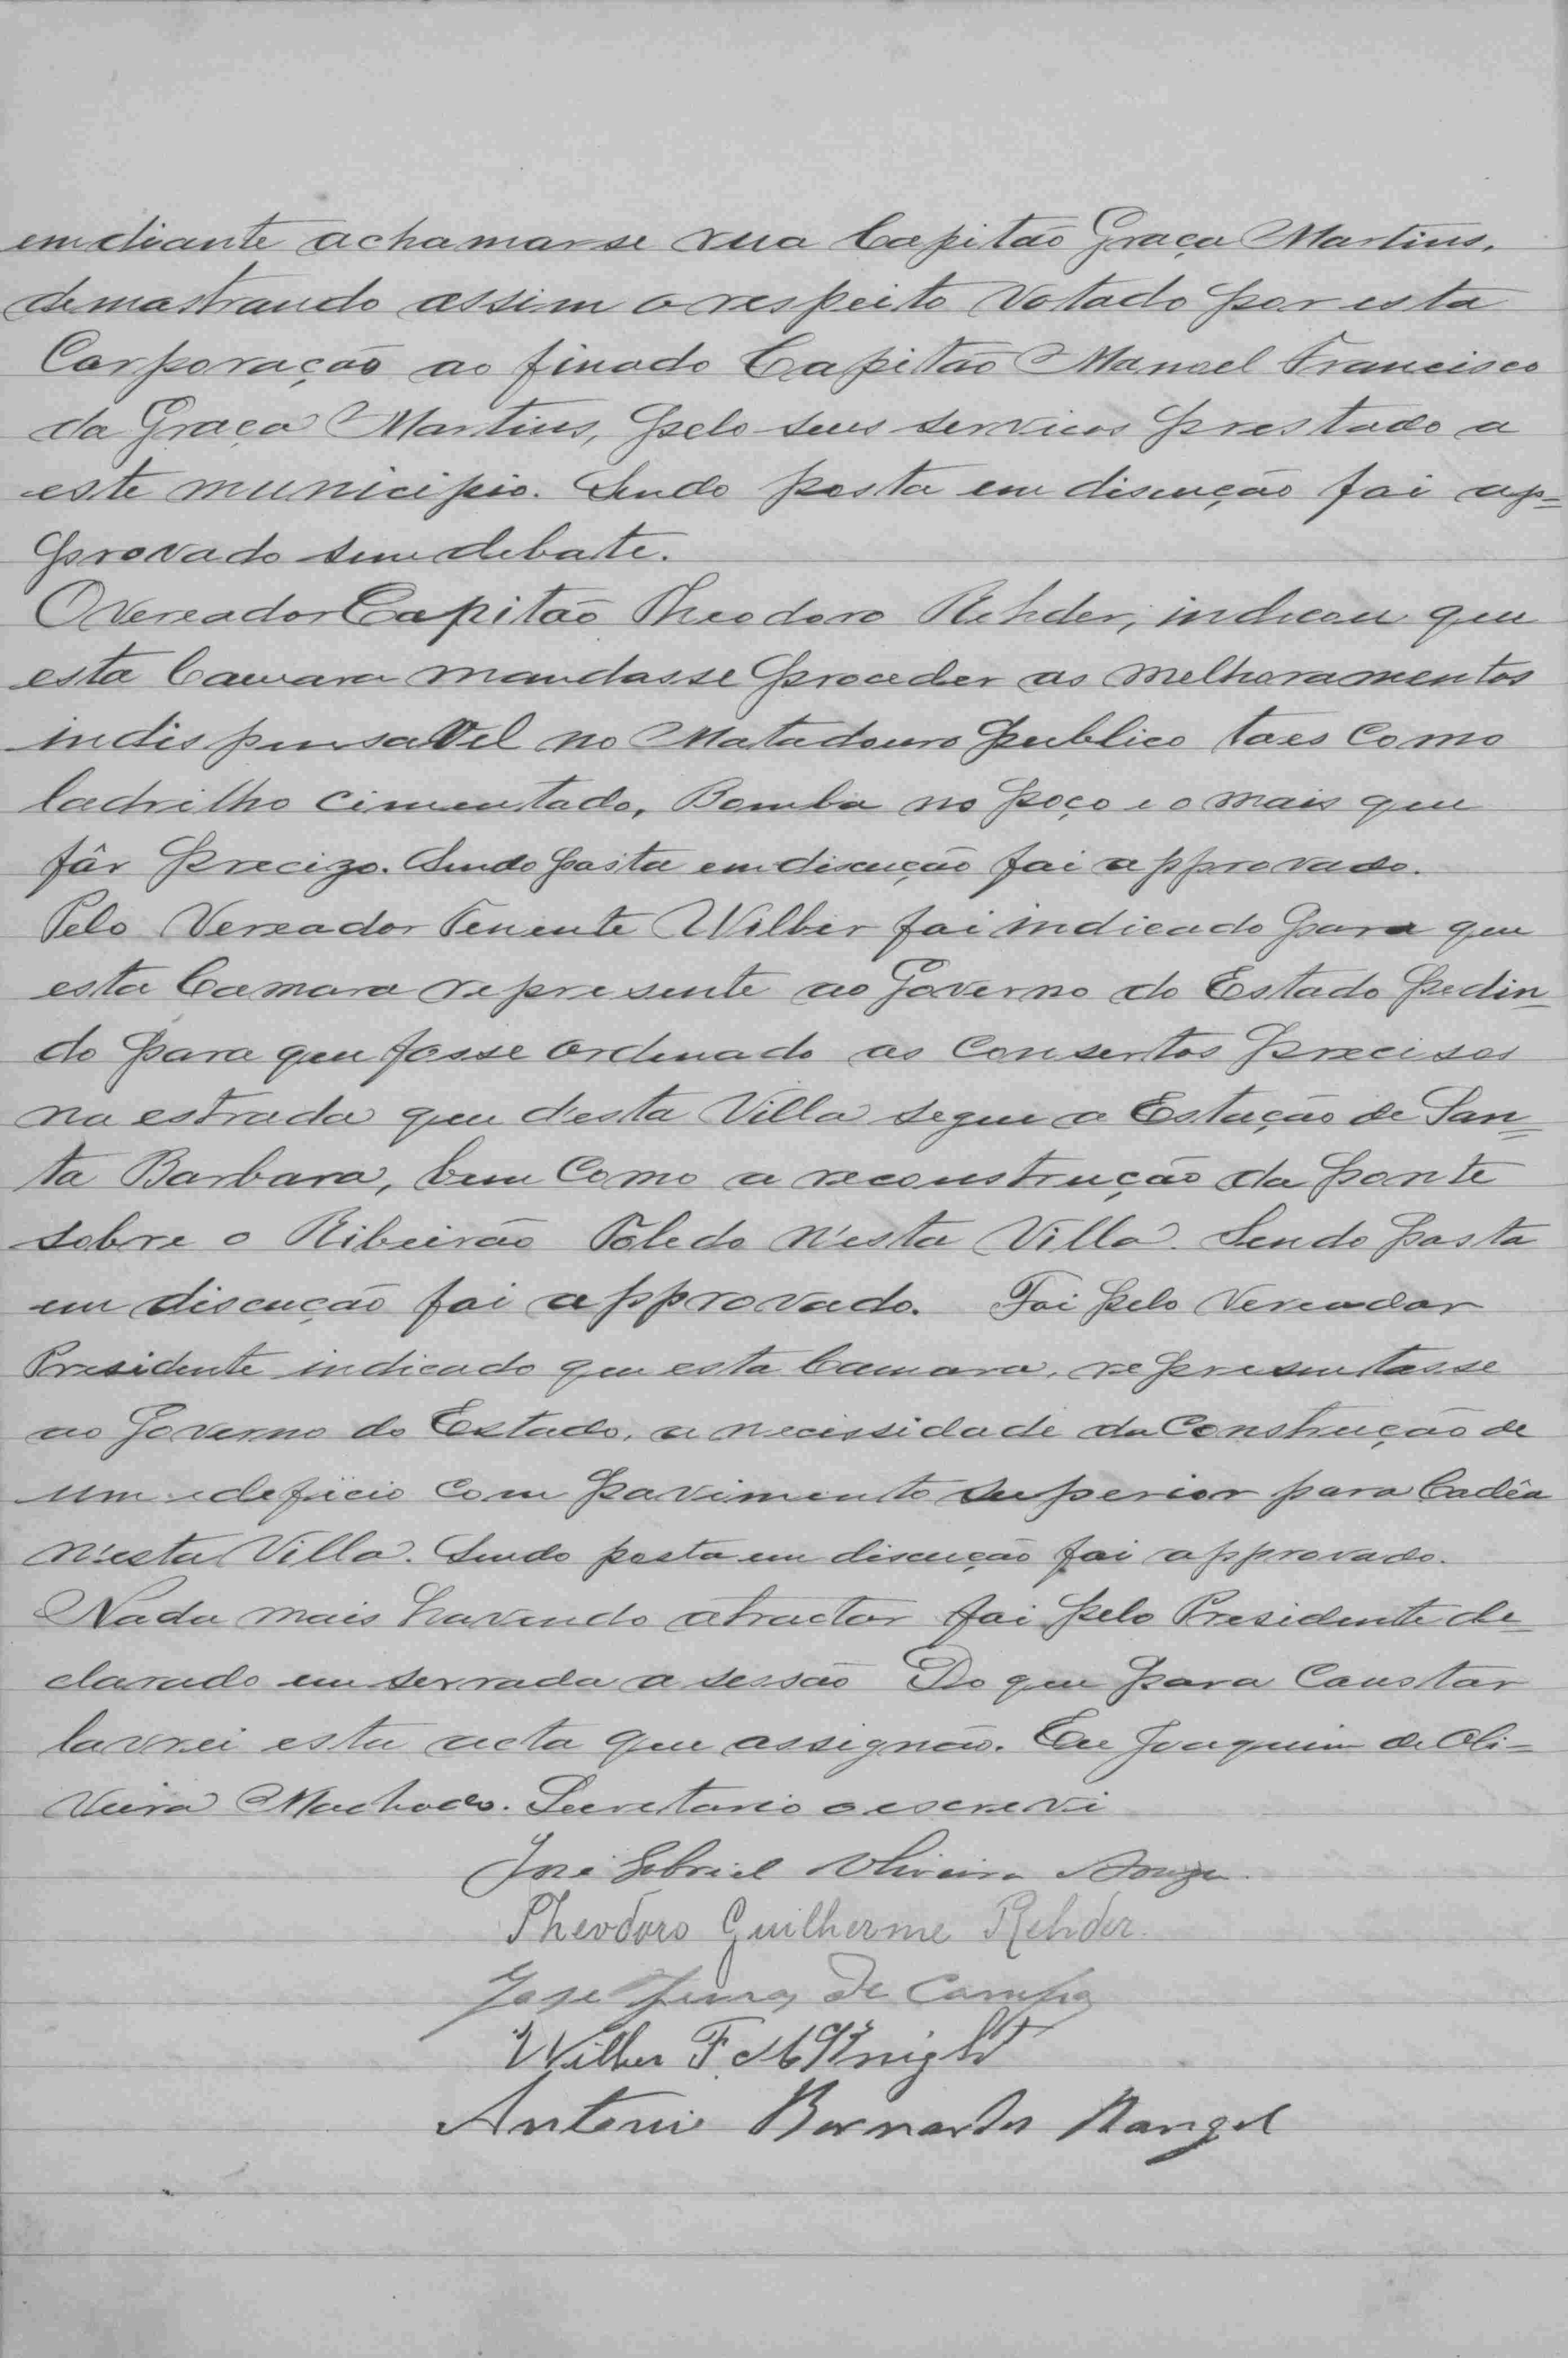 em diante achamarse rua Capitão Graça Martins,
demostrando assim o respeito votado por esta
Corporação ao finado Capitão Manoel Francisco
da Graça Martins, pelo seus servicos prestado a
este municipio. Sendo posta em discução foi ap=
provado sem debate.
O Vereador Capitão Theodoro Rehder, indicou que
esta Camara mandasse proceder os melhoramentos
indispensavel no Matadouro publico taes como
ladrilho cimentado, Bomba no poço e o mais que
fôr precizo. Sendo posta em discução foi approvado.
Pelo Vereador Tenente Wilber foi indicado para que
esta Camara represente ao Governo do Estado pedin_
do para que fosse ordenado os consertos precisos
na estrada que d'esta Villa segue a Estação de San=
ta Barbara, bem como a reconstrução da ponte
sobre o Ribeirão Toledo n'esta Villa. Sendo posta
em discução foi approvado. Foi pelo Vereador
Presidente indicado que esta Camara, representasse
ao Governo do Estado, a necissidade da Construção de
um edeficio com pavimento superior para Cadêa
n'esta Villa. Sendo posta em discução foi approvado.
Nada mais havendo atractar foi pelo Presidente de_
clarado em serrada a sessão Do que para Constar
lavrei esta acta que assignão. Eu Joaquim de Oli=
veira Machado. Secretario o escrevi
José Gabriel Oliveira Souza
Theodoro Guilherme Rehder.
Jose de Campos
Wilber F. McKnight
Antonio Bernardes Rangel